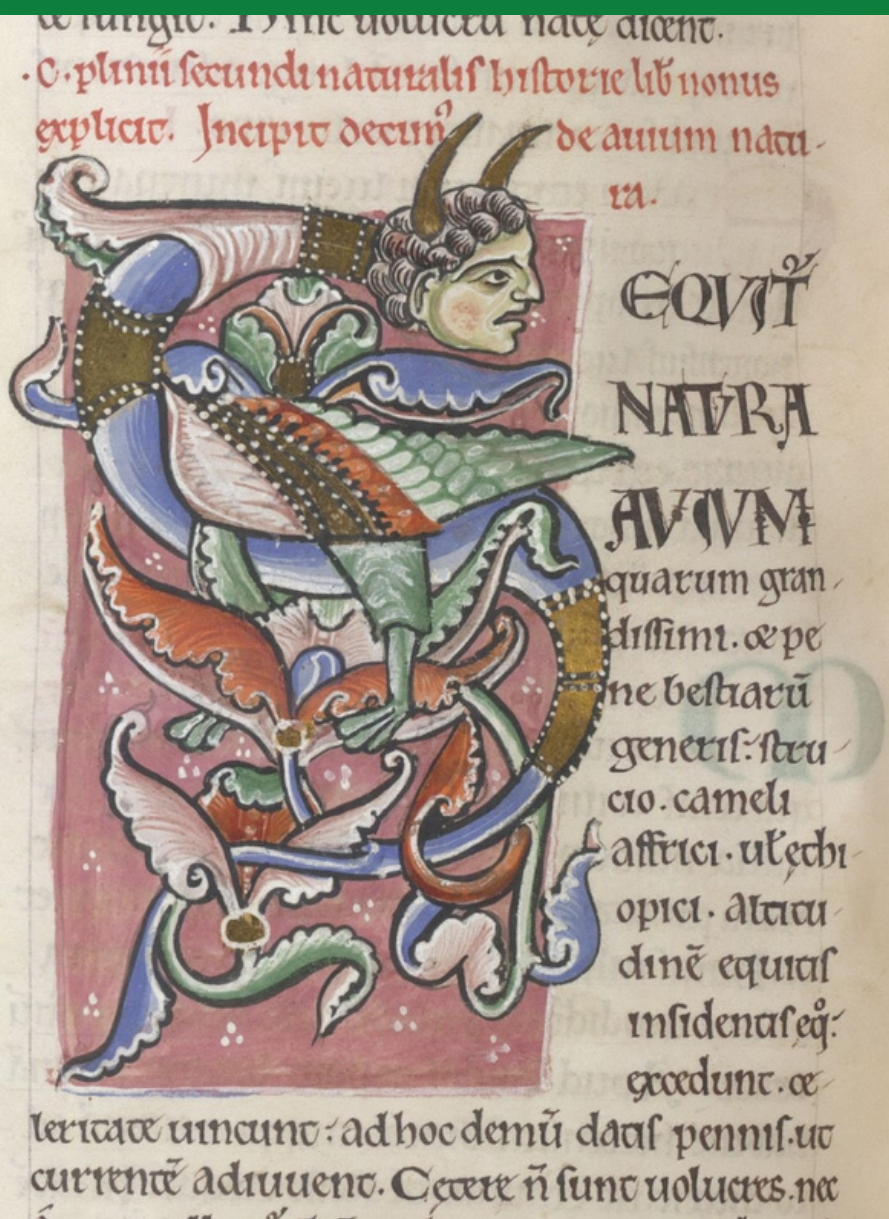 Hinc uolucru natę dicent.
.C. plinii secundi naturalis historie lib̄ nonus
explicit. Incipit decim᾽ de auium natu-
ra.
EQUIT᷑
NATURA
AVIUM
quarum gran-
dissimi. & pe
ne bestiarū
generis: stru-
cio. cameli
affrici. ul̵ ęthi-
opici. altitu-
dinē equitis
insidentis eq̊:
excedunt. ce-
leritate uincunt: ad hoc demū datis pennis. ut
currentē adiuuent. Cętere n̄ sunt uolucres. nec